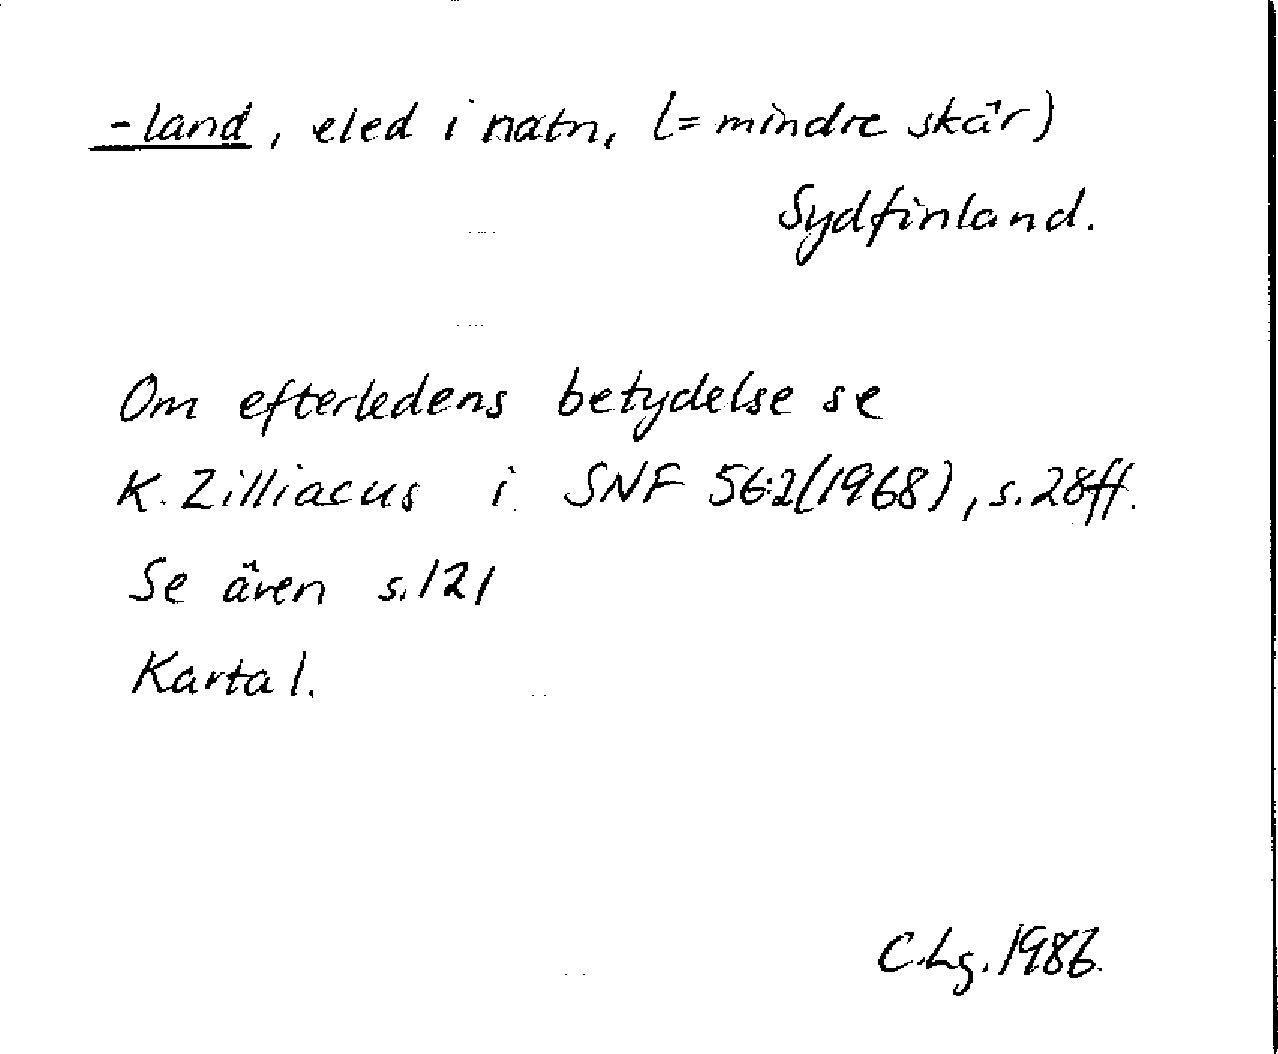 -land, eled i natn, (= mindre skär)
Sydfinland.
Om efterledens betydelse se
K. Zilliacus i SNF 56:2(1968), s. 28ff.
Se även s. 121
Karta 1.
C.Lg. 1986.